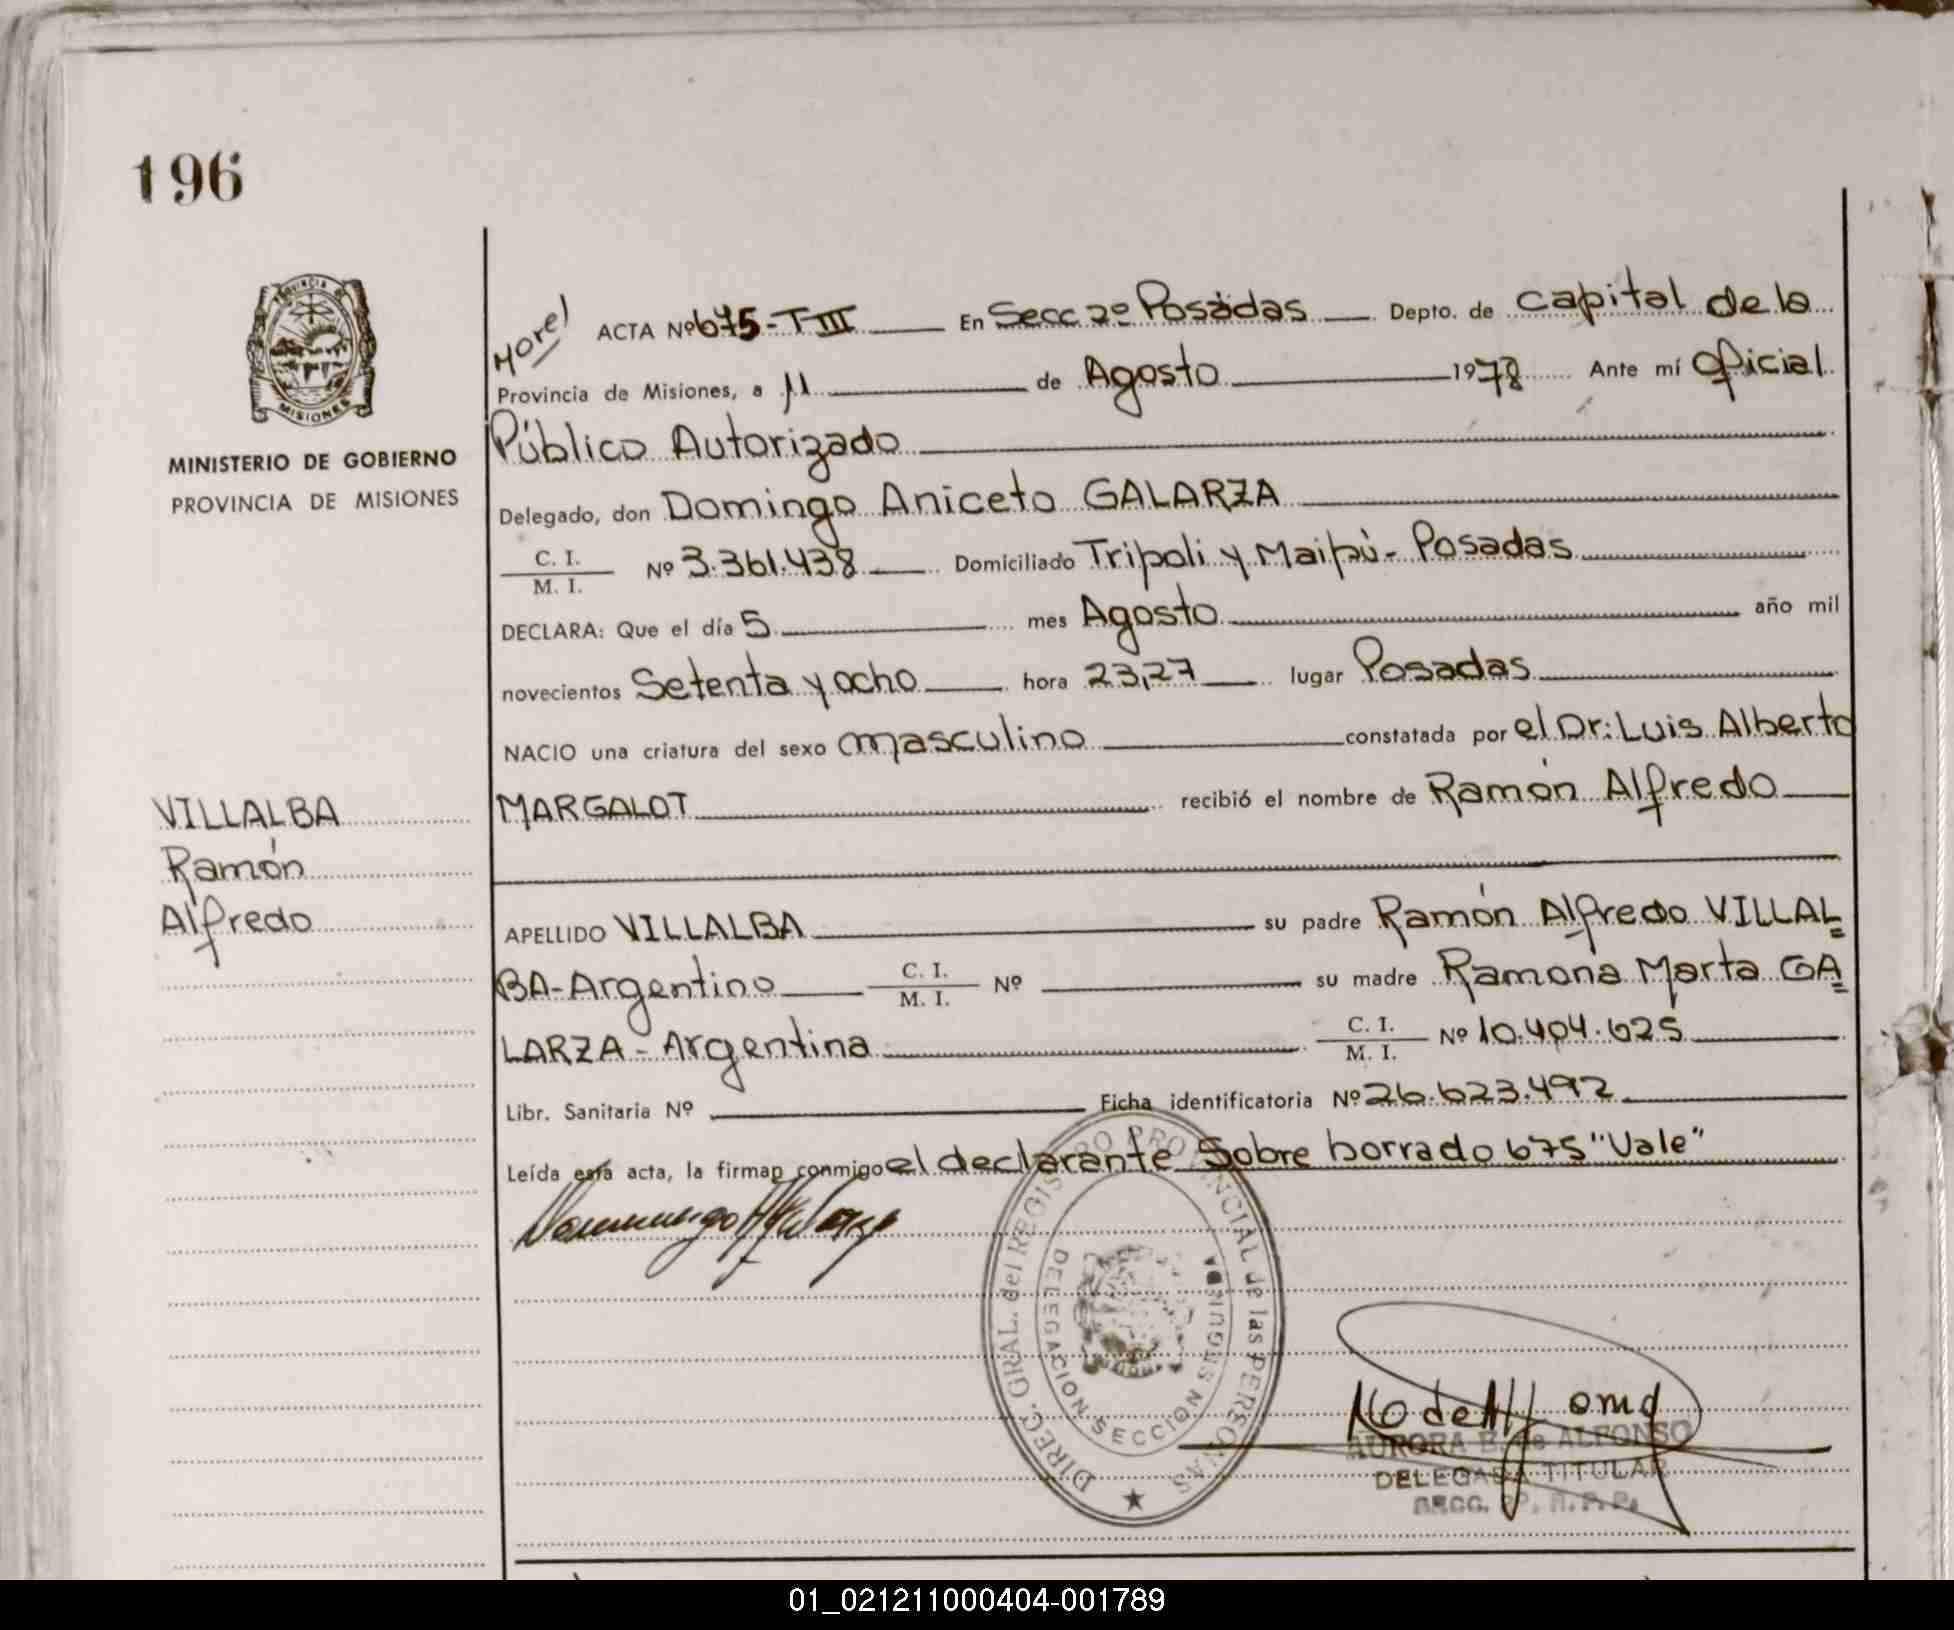 196
PROVINCIA DE
MISIONES
MINISTERIO DE GOBIERNO
PROVINCIA DE MISIONES
VILLALBA
Ramón
Alfredo
Morel
ACTA Nº 675-T III En Secc 2º Posadas Depto. de Capital de la
Provincia de Misiones, a 11 de Agosto 1978 Ante mí Oficial
Público Autorizado
Delegado, don Domingo Aniceto GALARZA
C. I.
M. I. Nº 3.361.438 Domiciliado Tripoli y Maipú - Posadas
DECLARA: Que el día 5 mes Agosto año mil
novecientos Setenta y ocho hora 23,27 lugar Posadas
NACIO una criatura del sexo masculino constatada por el Dr: Luis Alberto
MARGALOT recibió el nombre de Ramón Alfredo
APELLIDO VILLALBA su padre Ramón Alfredo VILLAL=
BA-Argentino C. I. M. I. Nº su madre Ramona Marta GA=
LARZA - Argentina C. I. M. I. Nº 10.404.625
Libr. Sanitaria Nº Ficha identificatoria Nº 26.623.492
Leída esta acta, la firman conmigo el declarante Sobre borrado 675 "Vale"
DIREC. GRAL. del REGISTRO PROVINCIAL de las PERSONAS
DELEGACION SECCION
AURORA B. de ALFONSO
DELEGADA TITULAR
SECC. 2º. R. P. P.
01_021211000404-001789